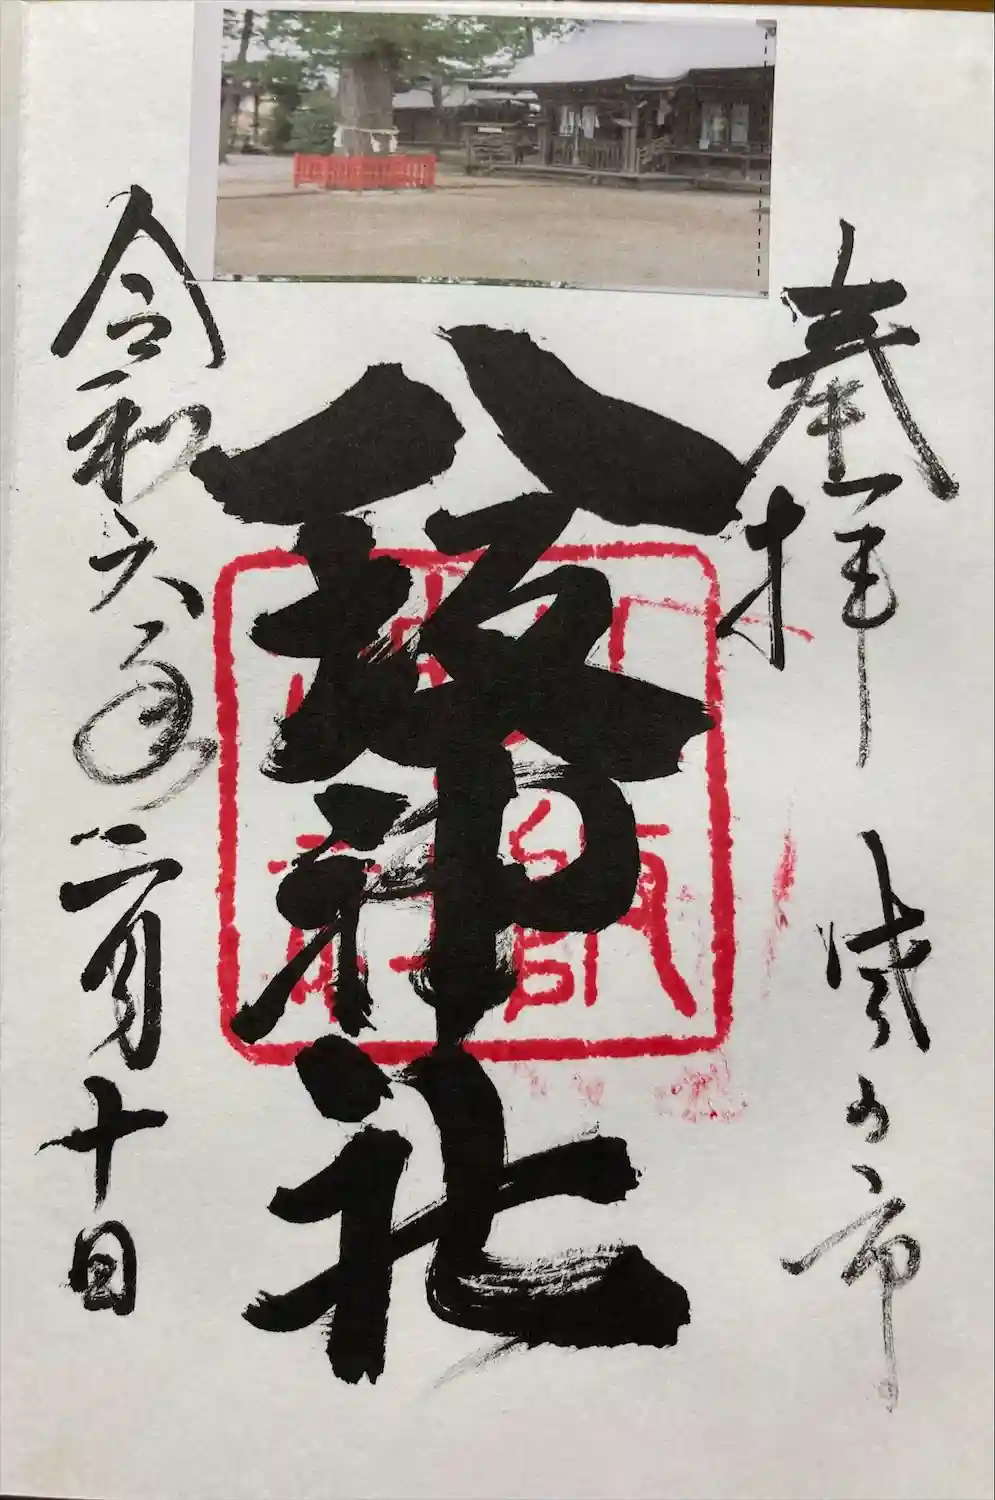 奉拝 の市
八坂神社
令和六年二月十日